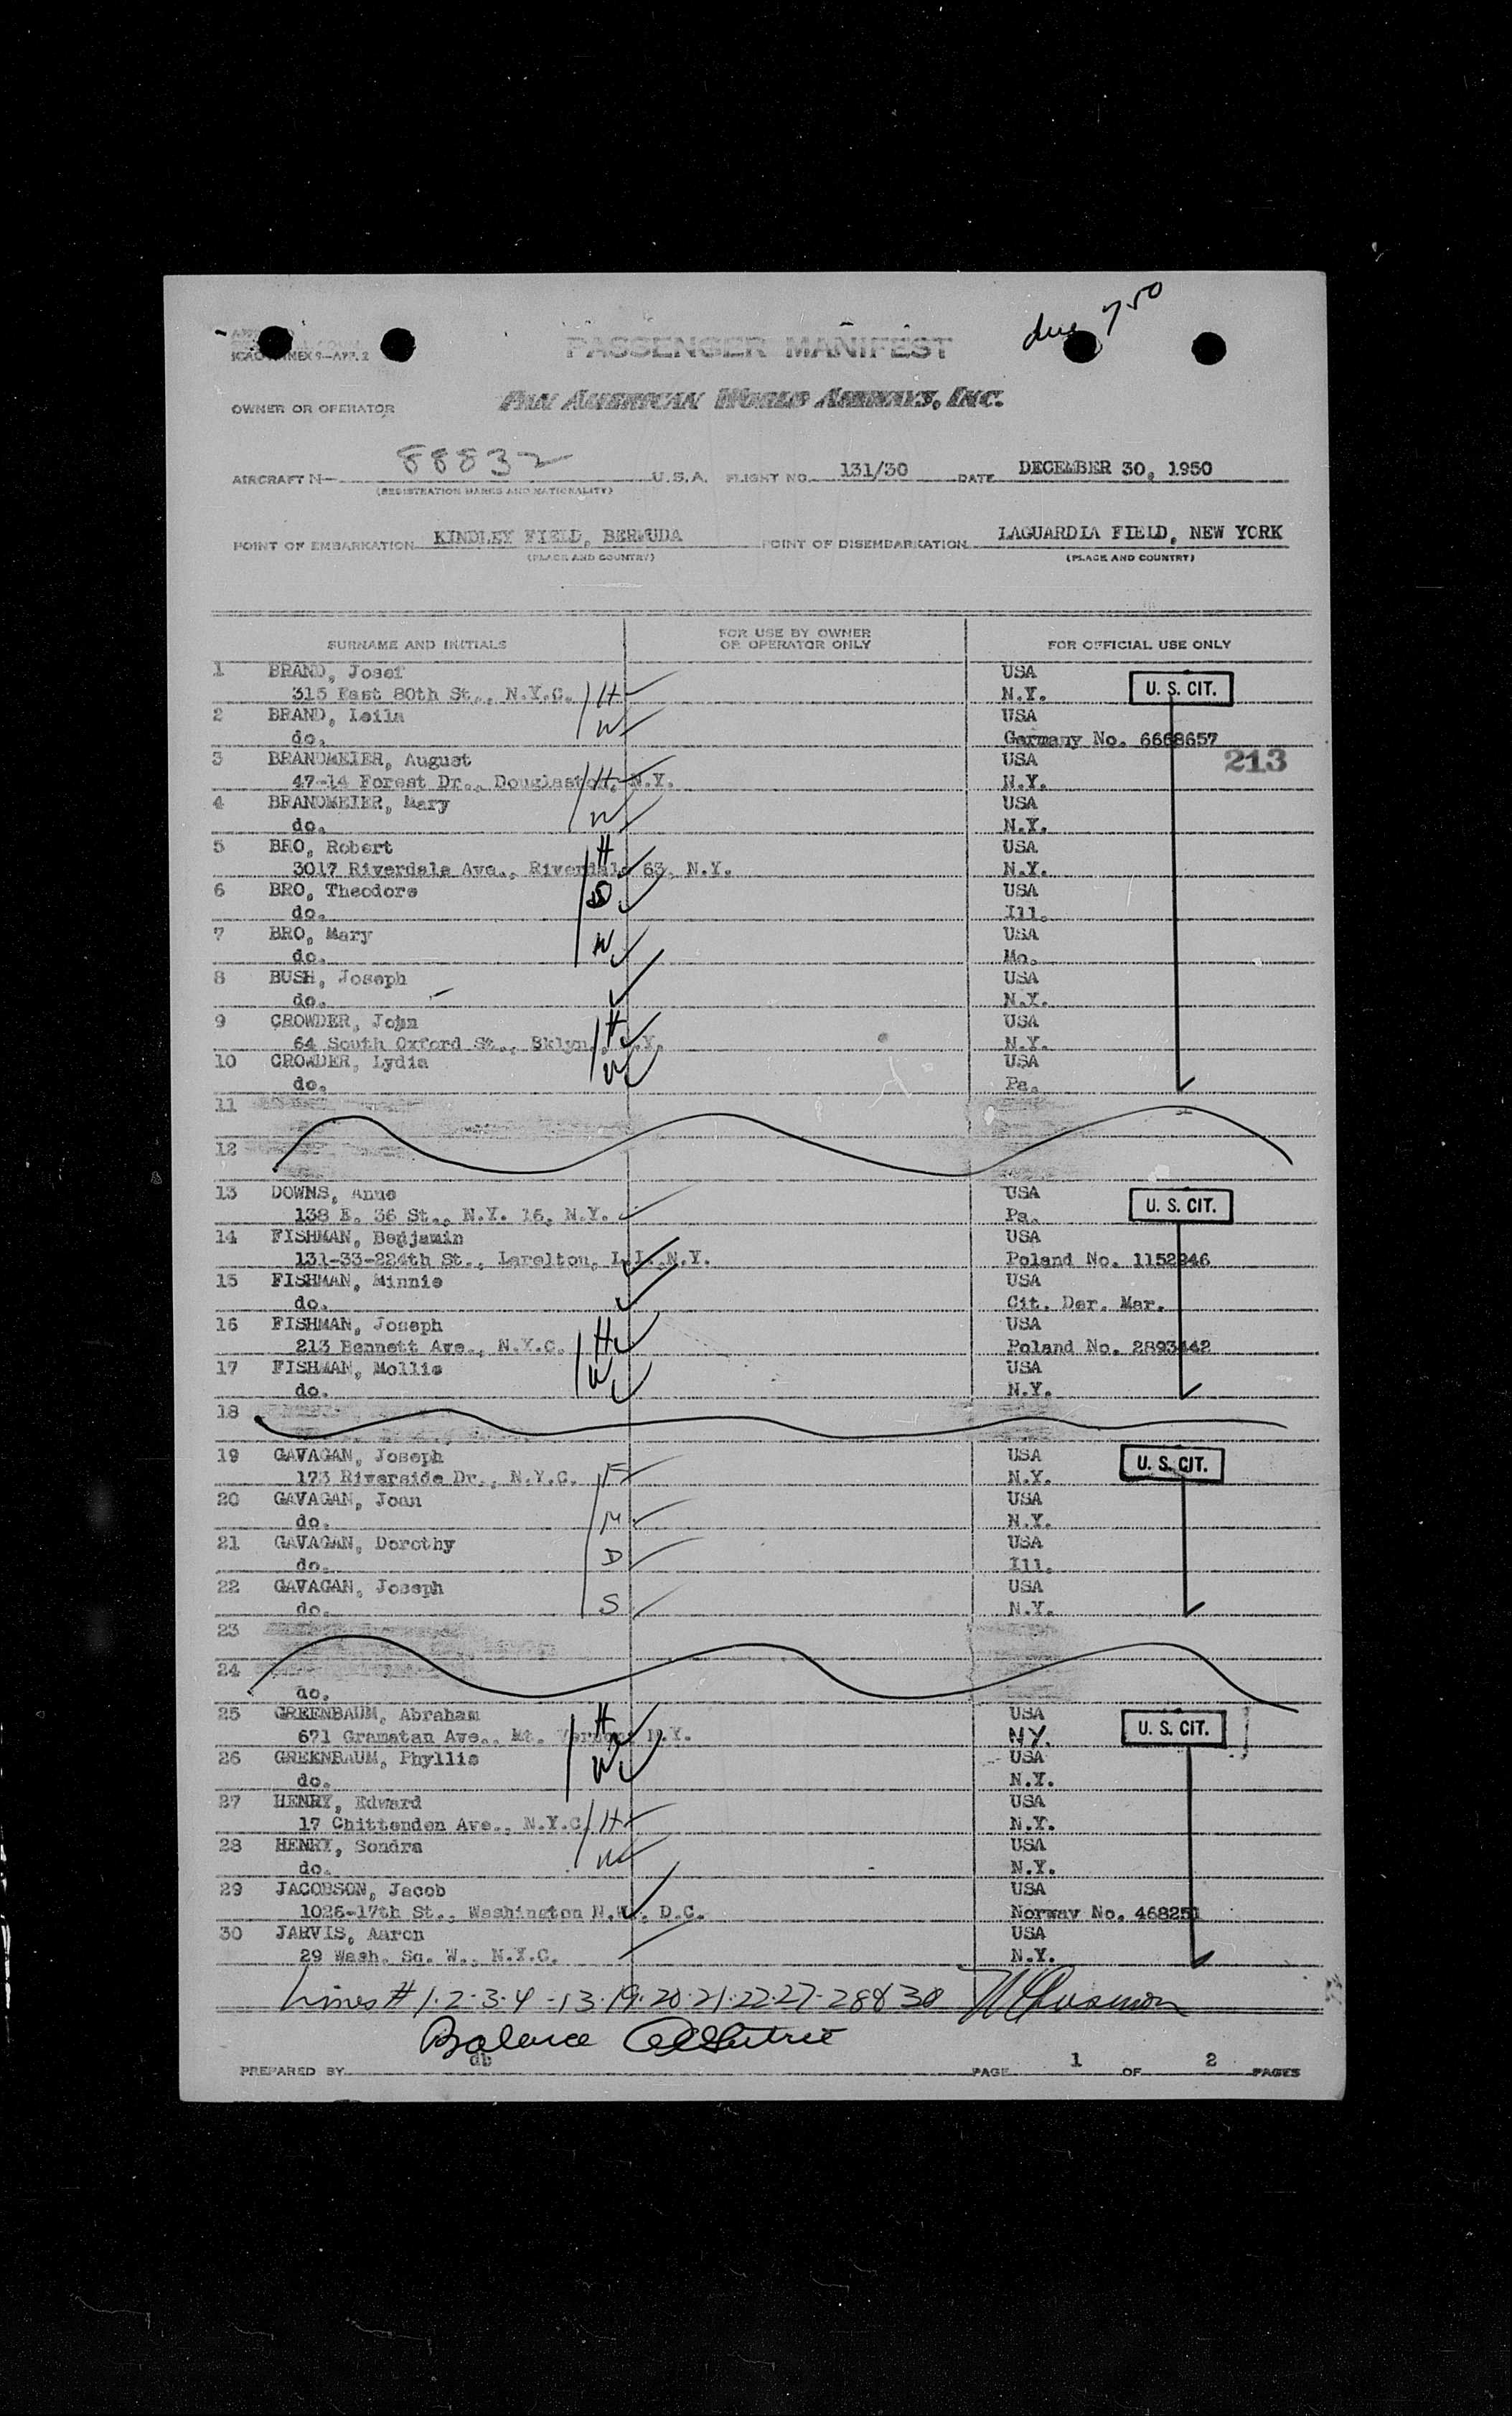 Aug 7 50
ICAO ANNEX 9—APP. 2
PASSENGER MANIFEST
OWNER OR OPERATOR PAN AMERICAN WORLD AIRWAYS, INC.
AIRCRAFT N— 88832 U.S.A. FLIGHT NO. 131/30 DATE DECEMBER 30, 1950
(REGISTRATION MARKS AND NATIONALITY)
POINT OF EMBARKATION KINDLEY FIELD, BERMUDA POINT OF DISEMBARKATION LAGUARDIA FIELD, NEW YORK
(PLACE AND COUNTRY) (PLACE AND COUNTRY)
SURNAME AND INITIALS FOR USE BY OWNER OR OPERATOR ONLY FOR OFFICIAL USE ONLY
1 BRAND, Josef USA
315 East 80th St., N.Y.C. H N.Y. U. S. CIT.
2 BRAND, Leila W USA
do. Germany No. 6668657
3 BRANDMEIER, August USA 213
47-14 Forest Dr., Douglaston, N.Y. H N.Y.
4 BRANDMEIER, Mary W USA
do. N.Y.
5 BRO, Robert H USA
3017 Riverdale Ave., Riverdale 63, N.Y. N.Y.
6 BRO, Theodore S USA
do. Ill.
7 BRO, Mary W USA
do. Mo.
8 BUSH, Joseph USA
do. N.Y.
9 CROWDER, John H USA
64 South Oxford St., Bklyn., N.Y. N.Y.
10 CROWDER, Lydia W USA
do. Pa.
11
12
13 DOWNS, Anne USA
138 E. 36 St., N.Y. 16, N.Y. Pa. U. S. CIT.
14 FISHMAN, Benjamin USA
131-33-224th St., Larelton, L.I.,N.Y. Poland No. 1152246
15 FISHMAN, Minnie USA
do. Cit. Der. Mar.
16 FISHMAN, Joseph H USA
213 Bennett Ave., N.Y.C. Poland No. 2893442
17 FISHMAN, Mollie W USA
do. N.Y.
18
19 GAVAGAN, Joseph USA
173 Riverside Dr., N.Y.C. F N.Y. U. S. CIT.
20 GAVAGAN, Joan USA
do. M N.Y.
21 GAVAGAN, Dorothy USA
do. D Ill.
22 GAVAGAN, Joseph USA
do. S N.Y.
23
24
do.
25 GREENBAUM, Abraham H USA
671 Gramatan Ave., Mt. Vernon N.Y. NY. U. S. CIT.
26 GREENBAUM, Phyllis W USA
do. N.Y.
27 HENRY, Edward USA
17 Chittenden Ave., N.Y.C. H N.Y.
28 HENRY, Sondra W USA
do. N.Y.
29 JACOBSON, Jacob USA
1026-17th St., Washington N.W., D.C. Norway No. 468251
30 JARVIS, Aaron USA
29 Wash. Sq. W., N.Y.C. N.Y.
Lines # 1·2·3·4-13·19·20·21·22·27-28&30
Balance
PREPARED BY db PAGE 1 OF 2 PAGES